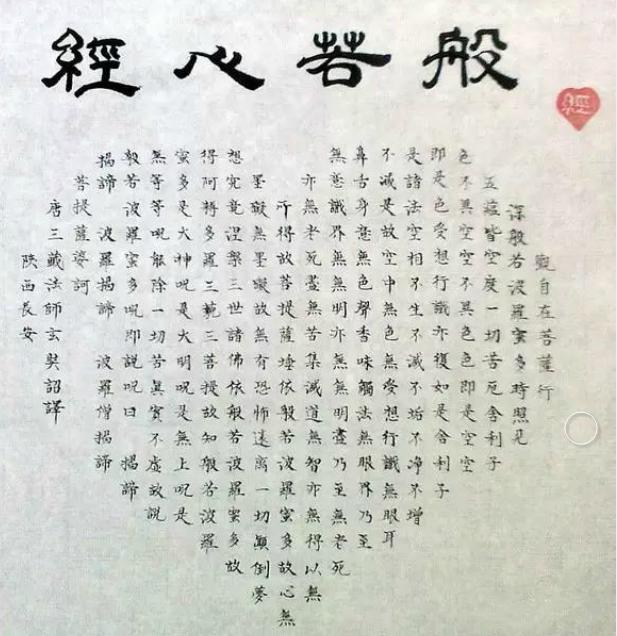 般若心經
經
觀自在菩薩行
深般若波羅蜜多時照見
五蘊皆空度一切苦厄舍利子
色不異空空不異色色即是空空
即是色受想行識亦復如是舍利子
是諸法空相不生不滅不垢不净不增
不減是故空中無色無受想行識無眼耳
鼻舌身意無色聲香味觸法無眼界乃至
無意識界無無明亦無無明盡乃至無老死
亦無老死盡無苦集滅道無智亦無得以無
所得故菩提薩埵依般若波羅蜜多故心無
罣礙無罣礙故無有恐怖遠離一切顛倒夢
想究竟涅槃三世諸佛依般若波羅蜜多故
得阿耨多羅三藐三菩提故知般若波羅
蜜多是大神呪是大明呪是無上呪是
無等等呪能除一切苦真實不虛故說
般若波羅蜜多呪即說呪曰 揭諦
揭諦 波羅揭諦 波羅僧揭諦
菩提薩婆訶
唐三藏法師玄奘詔譯
陝西長安